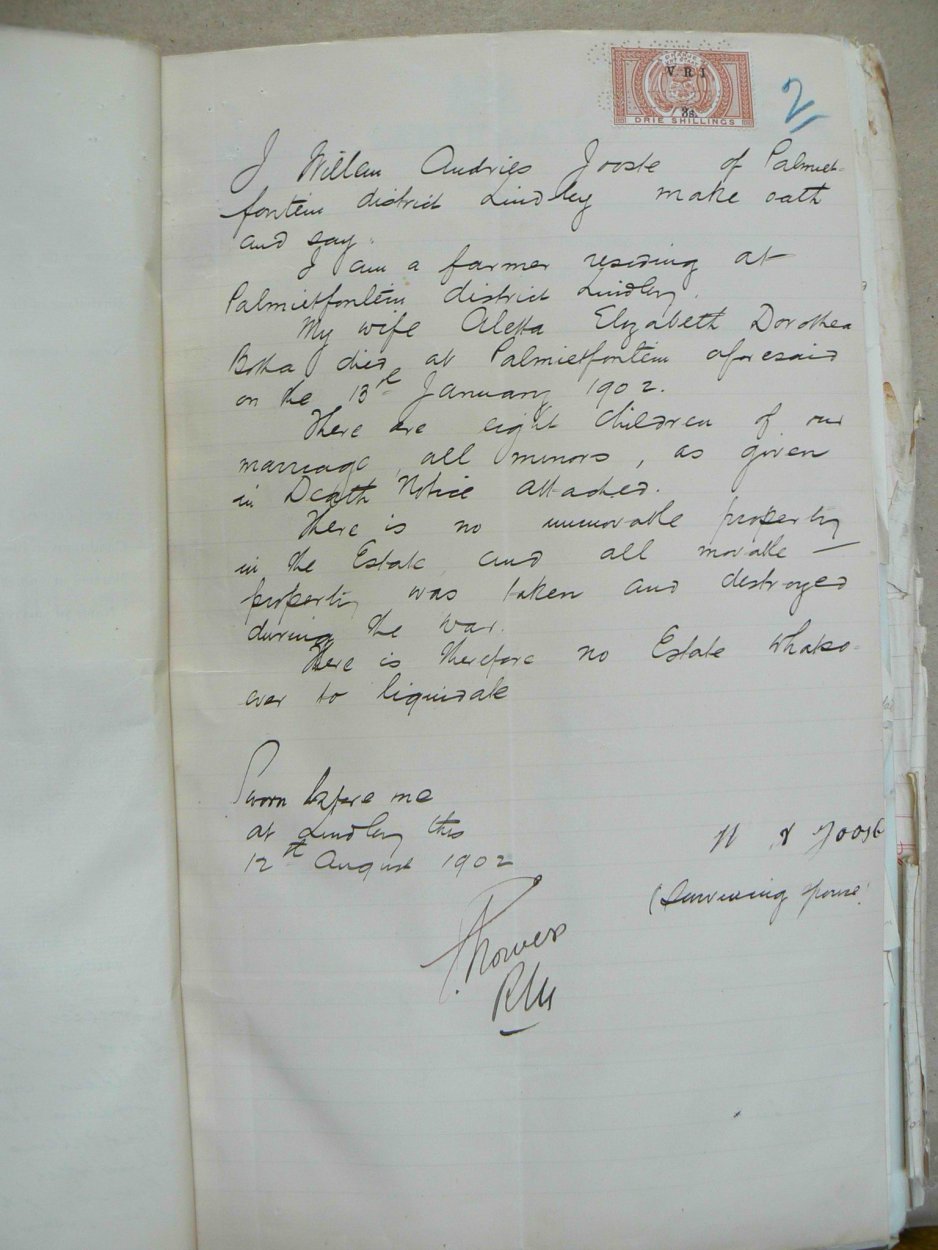 V R I
3s.
DRIE SHILLINGS
2
I Willem Andries Jooste of Palmiet-
fontein district Lindley make oath
and say:
I am a farmer residing at
Palmietfontein district Lindley.
My wife Aletta Elizabeth Dorothea
Botha died at Palmietfontein aforesaid
on the 13th January 1902.
There are eight children of our
marriage, all minors, as given
in Death Notice attached.
There is no immovable property
in the Estate and all movable
property was taken and destroyed
during the war.
There is therefore no Estate whatso-
ever to liquidate
Sworn before me
at Lindley this
12th August 1902
W A Jooste
(Surviving spouse)
RM